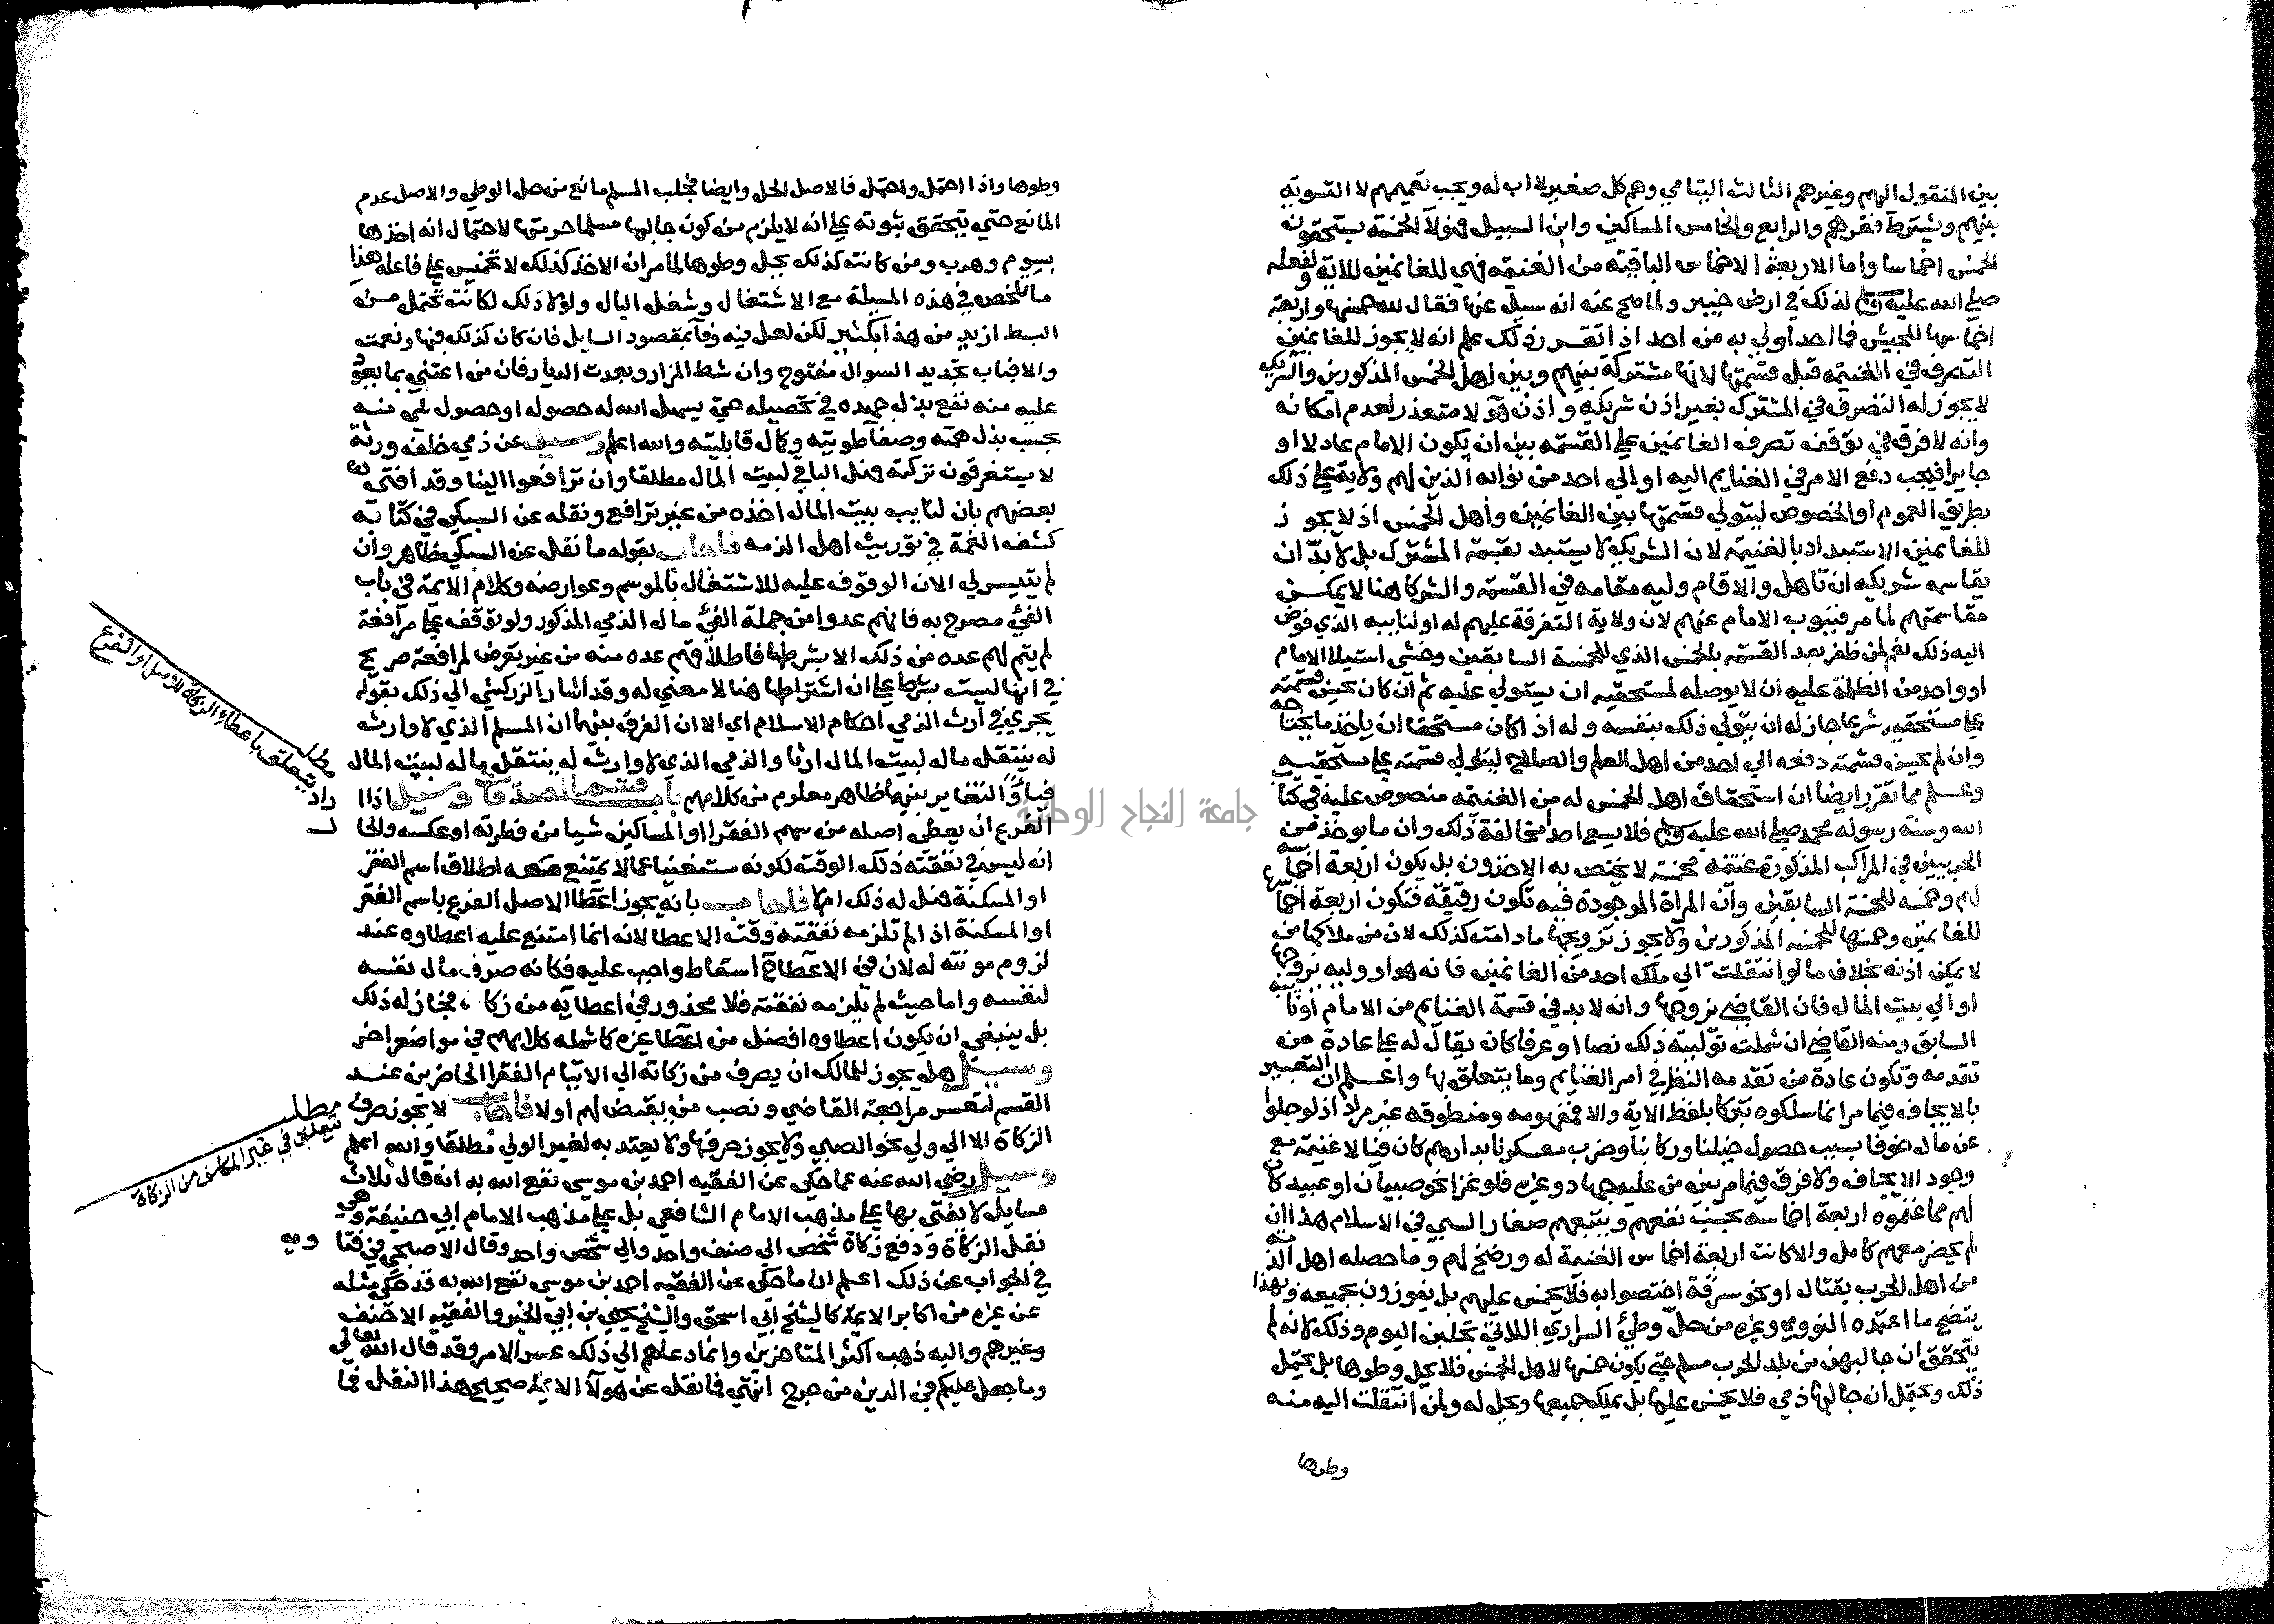 بين المنقول اليهم وغيرهم الثالث اليتامي وهم كل صغير لا اب له ويجب تعميمهم لا التسوية
بينهم ويشترط فقرهم والرابع والخامس المساكين وابن السبيل فهولآ الخمسة يستحقون
الخمس اخماسا واما الاربعة الاخماس الباقية من الغنيمة فهي للغانمين للاية ولفعله
صلي الله عليه وسلم لذلك في ارض خيبر ولما صح عنه انه سيل عنها فقال لله خمسها واربعة
اخماسها للجيش فما احد اولي به من احد اذا تقرر ذلك علم انه لا يجوز للغانمين
التصرف في الغنيمة قبل قسمتها لانها مشتركة بينهم وبين اهل الخمس المذكورين والشريك
لا يجوز له التصرف في المشترك بغير اذن شريكه واذن هولا متعذر لعدم امكانه
وانه لا فرق في توقف تصرف الغانمين علي القسمة بين ان يكون الامام عادلا او
جايرا فيجب دفع الامر في الغنايم اليه او الي احد من نوابه الذين لهم ولاية علي ذلك
بطريق العموم او الخصوص ليتولي قسمتها بين الغانمين وأهل الخمس اذ لا يجوز
للغانمين الاستبداد بالغنيمة لان الشريك لا يستبد بقسمة المشترك بل لا بد ان
يقاسمه شريكه ان تاهل والا قام وليه مقامه في القسمة والشركا هنا لا يمكن
مقاسمتهم لما مر فينوب الامام عنهم لان ولاية التفرقة عليهم له او لنايبه الذي فوض
اليه ذلك نعم لمن ظفر بعد القسمة بالخمس الذي للخمسة السابقين وخشي استيلا الامام
او واحد من الظلمة عليه ان لا يوصله لمستحقيه ان يستولي عليه ثم ان كان يحسن قسمته
علي مستحقيه شرعا جاز له ان يتولي ذلك بنفسه وله اذا كان مستحقا ان ياخذ ما يحتاجه
وان لم يحسن قسمته دفعه الي احد من اهل العلم والصلاح ليتولي قسمته علي مستحقيه
وعلم مما تقرر ايضا ان استحقاق اهل الخمس له من الغنيمة منصوص عليه في كتاب
الله وسنة رسوله محمد صلي الله عليه وسلم فلا يسع احدا مخالفة ذلك وان ما يوخذ من
الحربيين في المراكب المذكورة غنيمة مخمسة لا يختص به الاخذون بل يكون اربعة اخماسه
لهم وخمسه للخمسة السابقين وأن المراة الموجودة فيه تكون رقيقة فتكون اربعة اخماسها
للغانمين وخمسها للخمسة المذكورين ولا يجوز تزويجها ما دامت كذلك لان من ملاكها من
لا يمكن اذنه بخلاف ما لو انتقلت الي ملك احد من الغانمين فانه هو او وليه يزوجها
او الي بيت المال فان القاضي يزوجها وانه لا بد في قسمة الغنايم من الامام او نايبه
السابق ومنه القاضي ان شملت توليته ذلك نصا او عرفا كان يقال له علي عادة من
تقدمه وتكون عادة من تقدمه النظر في امر الغنايم وما يتعلق بها واعلم ان التعبير
بالايجاف فيما مر انما سلكوه تبركا بلفظ الاية والا فمفهومه ومنطوقه غير مراد اذ لو جلوا
عن مال خوفا بسبب حصول خيلنا وركابنا وضرب معسكرنا بدارهم كان فيا لا غنيمة مع
وجود الايجاف ولا فرق فيما مر بين من عليه جهاد وغيره فلو غزا نحو صبيان او عبيد كان
لهم مما غنموه اربعة اخماسه بحسب نفعهم ويتبعهم صغار السبي في الاسلام هذا ان
لم يحضر معهم كامل والا كانت اربعة اخماس الغنيمة له ورضخ لهم وما حصله اهل الذمة
من اهل الحرب بقتال او نحو سرقة اختصوا به فلا يخمس عليهم بل يفوزون بجميعه وبهذا
يتضح ما اعتمده النووي وغيره من حل وطئ السراري اللاتي تجلبن اليوم وذلك لانه لم
يتحقق ان جالبهن من بلد الحرب مسلم حتي يكون خمسها لاهل الخمس فلا يحل وطوها بل يحتمل
ذلك ويحتمل ان جالبها ذمي فلا يخمس عليها بل يملك جميعها ويحل له ولمن انتقلت اليه منه
وطوها
وطوها واذا احتمل واحتمل فالاصل الحل وايضا فجلب المسلم مانع من حل الوطي والاصل عدم
المانع حتي يتحقق ثبوته علي انه لا يلزم من كون جالبها مسلما حرمتها لاحتمال انه اخذها
بسوم وهرب ومن كانت كذلك يحل وطوها لما مر ان الاخذ كذلك لا تخميس علي فاعله هذا
ما تلخص في هذه المسيلة مع الاشتغال وشغل البال ولولا ذلك لكانت تحتمل من
البسط ازيد من هذا بكثير لكن لعل فيه وفآ بمقصود السايل فان كان كذلك فبها ونعمت
والا فباب تجديد السوال مفتوح وان شط المزار وبعدت الديار فان من اعتني بما يعود
عليه منه نفع بذل جهده في تحصيله حتي يسهل الله له حصوله او حصول شي منه
بحسب بذل همته وصفآ طويته وكمال قابليته والله اعلم وسيل عن ذمي خلف ورثة
لا يستغرقون تركته فهل الباقي لبيت المال مطلقا وان ترافعوا الينا وقد افتي
بعضهم بان لنايب بيت المال اخذه من غير ترافع ونقله عن السبكي في كتابه
كشف الغمة في توريث اهل الذمة فاجاب بقوله ما نقل عن السبكي ظاهر وان
لم يتيسر لي الان الوقوف عليه للاشتغال بالموسم وعوارضه وكلام الايمة في باب
الفئ مصرح به فانهم عدوا من جملة الفئ مال الذمي المذكور ولو توقف علي مرافعة
لم يتم لهم عده من ذلك الا بشرطها فاطلاقهم عده منه من غير تعرض لمرافعة صريح
في انها ليست بشرط علي ان اشتراطها هنا لا معني له وقد اشار الزركشي الي ذلك بقوله
يجري في ارث الذمي احكام الاسلام اي الا ان الفرق بينهما ان المسلم الذي لا وارث
له ينتقل ماله لبيت المال ارثا والذمي الذي لا وارث له ينتقل ماله لبيت المال
فيا والتغاير بينهما ظاهر معلوم من كلامهم باب قسم الصدقات وسيل اذا
الفرع ان يعطي اصله من سهم الفقرا او المساكين شيا من فطرته او عكسه والحا
انه ليس في نفقته ذلك الوقت لكونه مستغنيا عما لا يمتنع معه اطلاق اسم الفقر
او المسكنة فهل له ذلك ام لا فاجاب بانه يجوز اعطا الاصل الفرع باسم الفقر
او المسكنة اذا لم تلزمه نفقته وقت الاعطا لانه انما امتنع عليه اعطاوه عند
لزوم مونته له لان في الاعطآ اسقاط واجب عليه فكانه صرف مال نفسه
لنفسه واما حيث لم تلزمه نفقته فلا محذور في اعطايه من زكاته فجاز له ذلك
بل ينبغي ان يكون اعطاوه افضل من اعطا غيره كما شمله كلامهم في مواضع اخر
وسيل هل يجوز للمالك ان يصرف من زكاته الي الايتام الفقرا الحاضرين عند
القسم لتعسر مراجعة القاضي ونصب من يقبض لهم اولا فاجاب لا يجوز صرف
الزكاة الا الي ولي نحو الصبي ولا يجوز صرفها ولا يعتد به لغير الولي مطلقا والله اعلم
وسيل رضي الله عنه عما حكي عن الفقيه احمد بن موسي نفع الله به انه قال ثلاث
مسايل لا يفتي بها علي مذهب الامام الشافعي بل علي مذهب الامام ابي حنيفة وهي
نقل الزكاة ودفع زكاة شخص الي صنف واحد والي شخص واحد وقال الاصبحي في فتا
ويه
في الجواب عن ذلك اعلم ان ما حكي عن الفقيه احمد بن موسي نفع الله به قد حكي مثله
عن غيره من اكابر الايمة كالشيخ ابي اسحق والشيخ يحيي بن ابي الخير والفقيه الاحنف
وغيرهم واليه ذهب اكثر المتاخرين وانما دعاهم الي ذلك عسر الامر وقد قال الله تعالي
وما جعل عليكم في الدين من حرج انتهي فما نقل عن هولآ الايمة صحيح هذا النقل فما
مطلب
يتعلق باعطاء الزكاة للاصل او الفرع
راد
مطلب
يتعلق في غير المكلف من الزكاة
جامعة النجاح الوطنية